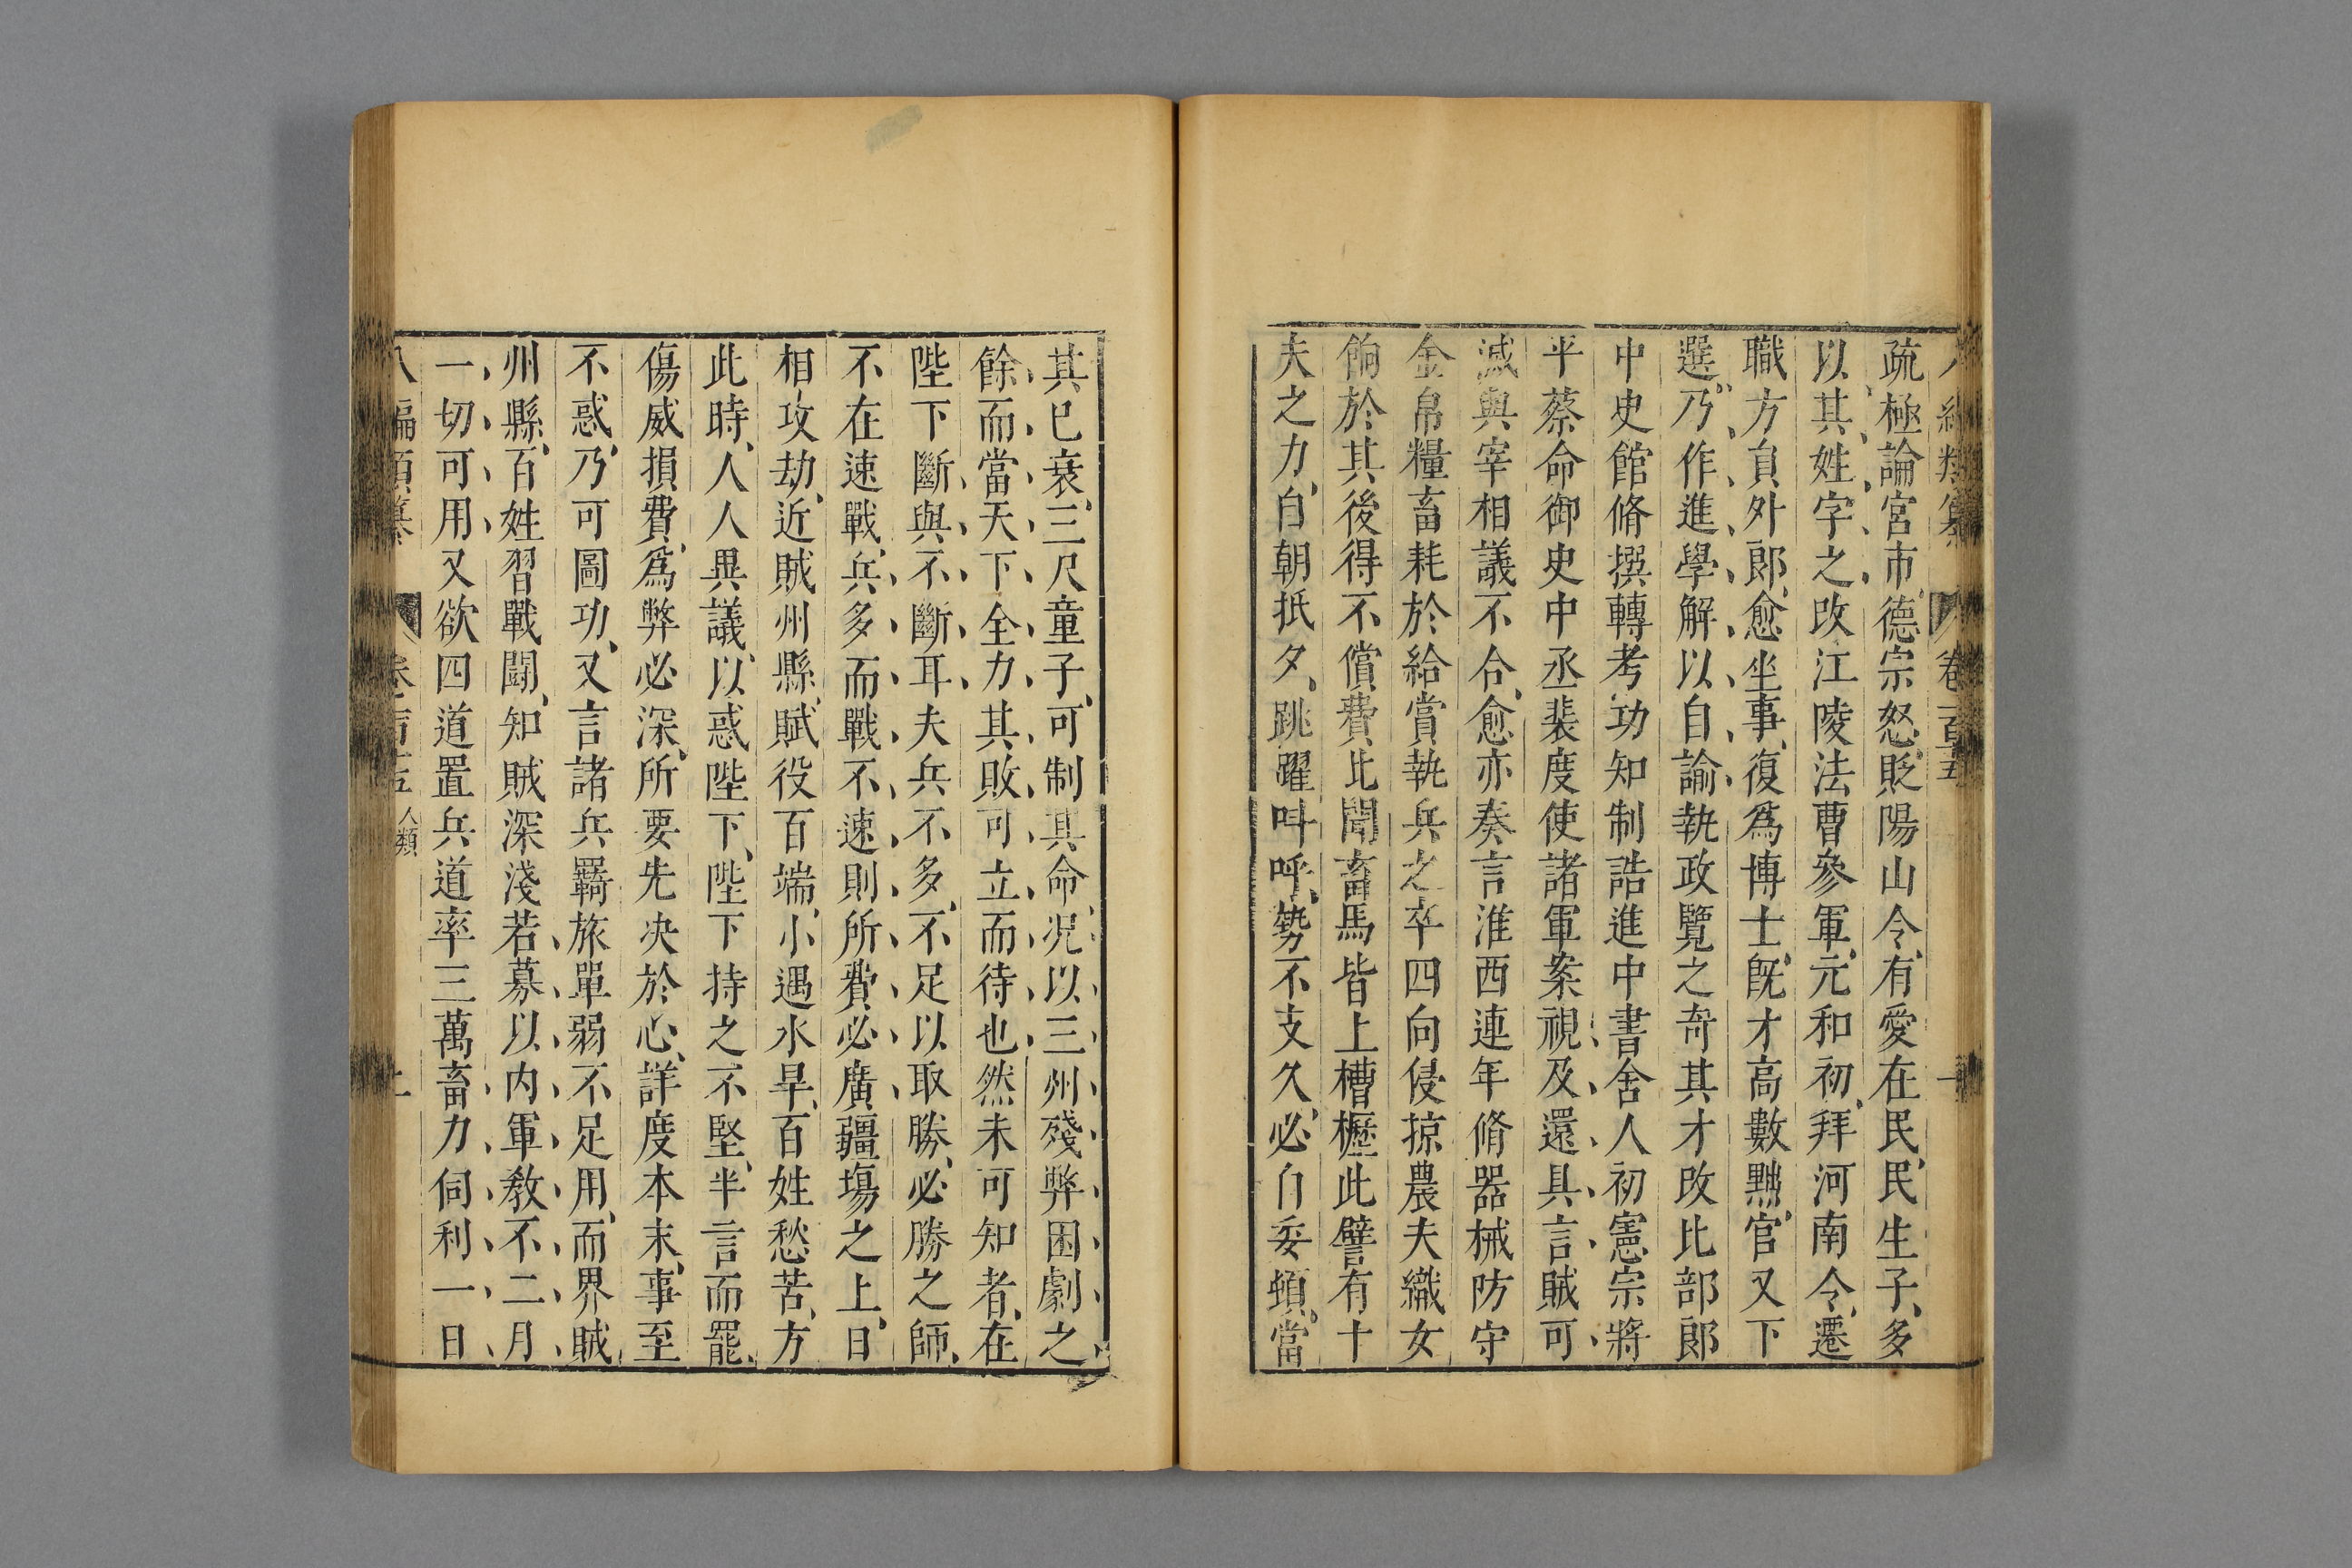 疏極論宮市德宗怒貶陽山令有愛在民民生子多
以其姓字之改江陵法曹參軍元和初拜河南令遷
職方員外郎愈坐事復爲博士旣才高數黜官又下
選乃作進學解以自諭執政覽之奇其才改比部郎
中史館脩撰轉考功知制誥進中書舍人初憲宗將
平蔡命御史中丞裴度使諸軍案視及還具言賊可
滅與宰相議不合愈亦奏言淮西連年脩器械防守
金帛糧畜耗於給賞執兵之卒四向侵掠農夫織女
餉於其後得不償費比聞畜馬皆上槽櫪此譬有十
夫之力自朝抵夕跳躍呌呼勢不支久必自委頓當
其已衰三尺童子可制其命况以三州殘弊困劇之
餘而當天下全力其敗可立而待也然未可知者在
陛下斷與不斷耳夫兵不多不足以取勝必勝之師
不在速戰兵多而戰不速則所費必廣疆塲之上日
相攻劫近賊州縣賦役百端小遇水旱百姓愁苦方
此時人人異議以惑陛下陛下持之不堅半言而罷
傷威損費爲弊必深所要先决於心詳度本末事至
不惑乃可圖功又言諸兵羇旅單弱不足用而界賊
州縣百姓習戰鬪知賊深淺若募以内軍敎不二月
一切可用又欲四道置兵道率三萬畜力伺利一日
八編類纂 卷一百五 人類